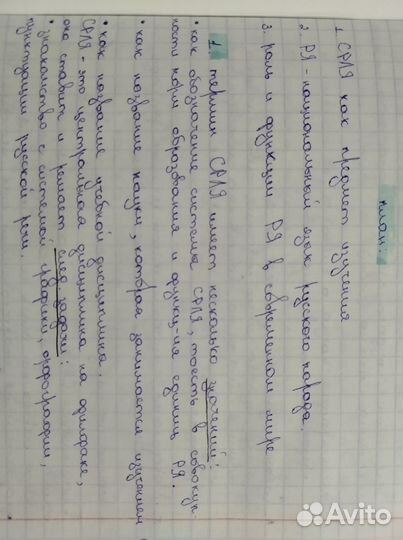 план:
1. СРЛЯ как предмет изучения
2. РЯ - национальный язык русского народа.
3. роль и функции РЯ в современном мире
1. термин СРЛЯ имеет несколько значений:
• как обозначение системы СРЛЯ, тоесть в совокуп-
ности норм образования и функц-ия единиц РЯ.
• как название науки, которая занимается изучением
• как название учебной дисциплины.
СРЛЯ - это центральная дисциплина на филфаке,
она ставит и решает след задачи:
• знакомство с системой графики, орфографии,
пунктуации русской речи.
Avito